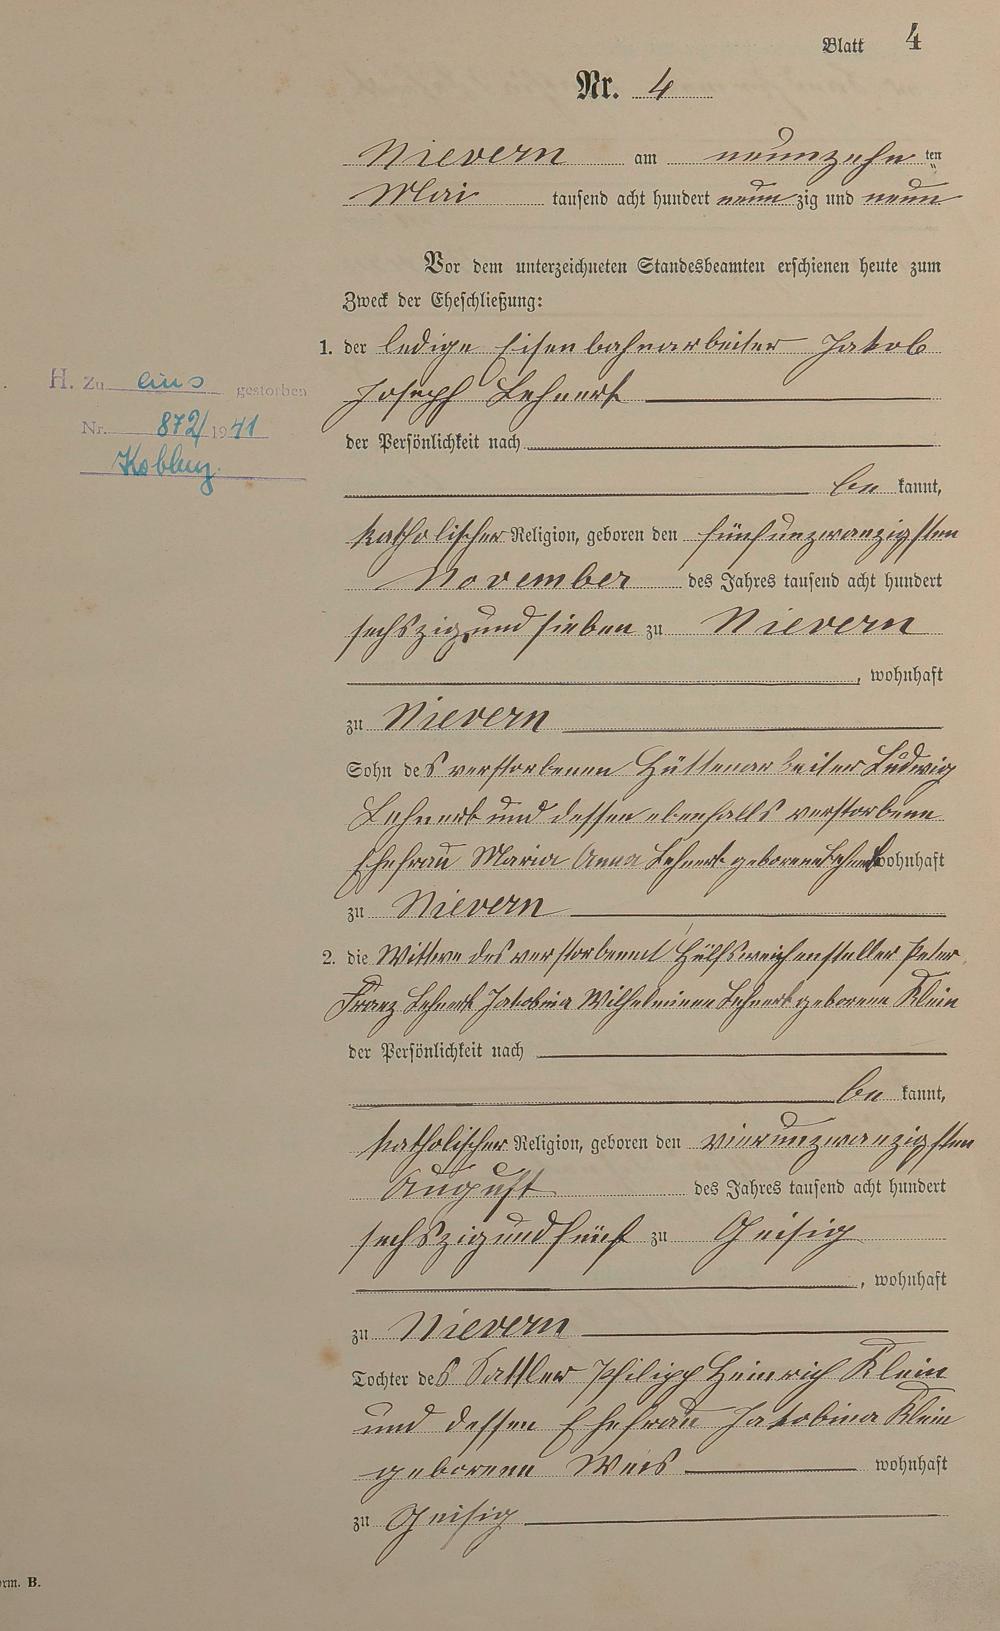 Blatt 4
Nr. 4
Nievern am neunzehnten
Mai tausend acht hundert neunzig und neun
Vor dem unterzeichneten Standesbeamten erschienen heute zum
Zweck der Eheschließung:
1. der ledige Eisenbahnarbeiter Jakob
Joseph Lehnert
H. Zu Eins gestorben
Nr. 872/1941
Koblenz.
der Persönlichkeit nach
be kannt,
katholischer Religion, geboren den fünfunzwanzigsten
November des Jahres tausend acht hundert
sechszig und sieben zu Nievern
, wohnhaft
zu Nievern
Sohn des verstorbenen Hüttenarbeiter Ludwig
Lehnert und dessen ebenfalls verstorbene
Ehefrau Maria Anna Lehnert geborene Lehnert wohnhaft
zu Nievern
2. die Wittwe des verstorbenen Hülfsweichensteller Peter
Franz Lehnert Jakobina Wilhelmine Lehnert geborene Klein
der Persönlichkeit nach
be kannt,
katholischer Religion, geboren den vierunzwanzigsten
August des Jahres tausend acht hundert
sechszig und fünf zu Geisig
, wohnhaft
zu Nievern
Tochter des Sattler Philipp Heinrich Klein
und dessen Ehefrau Jakobina Klein
geborene Weis wohnhaft
zu Geisig
orm. B.